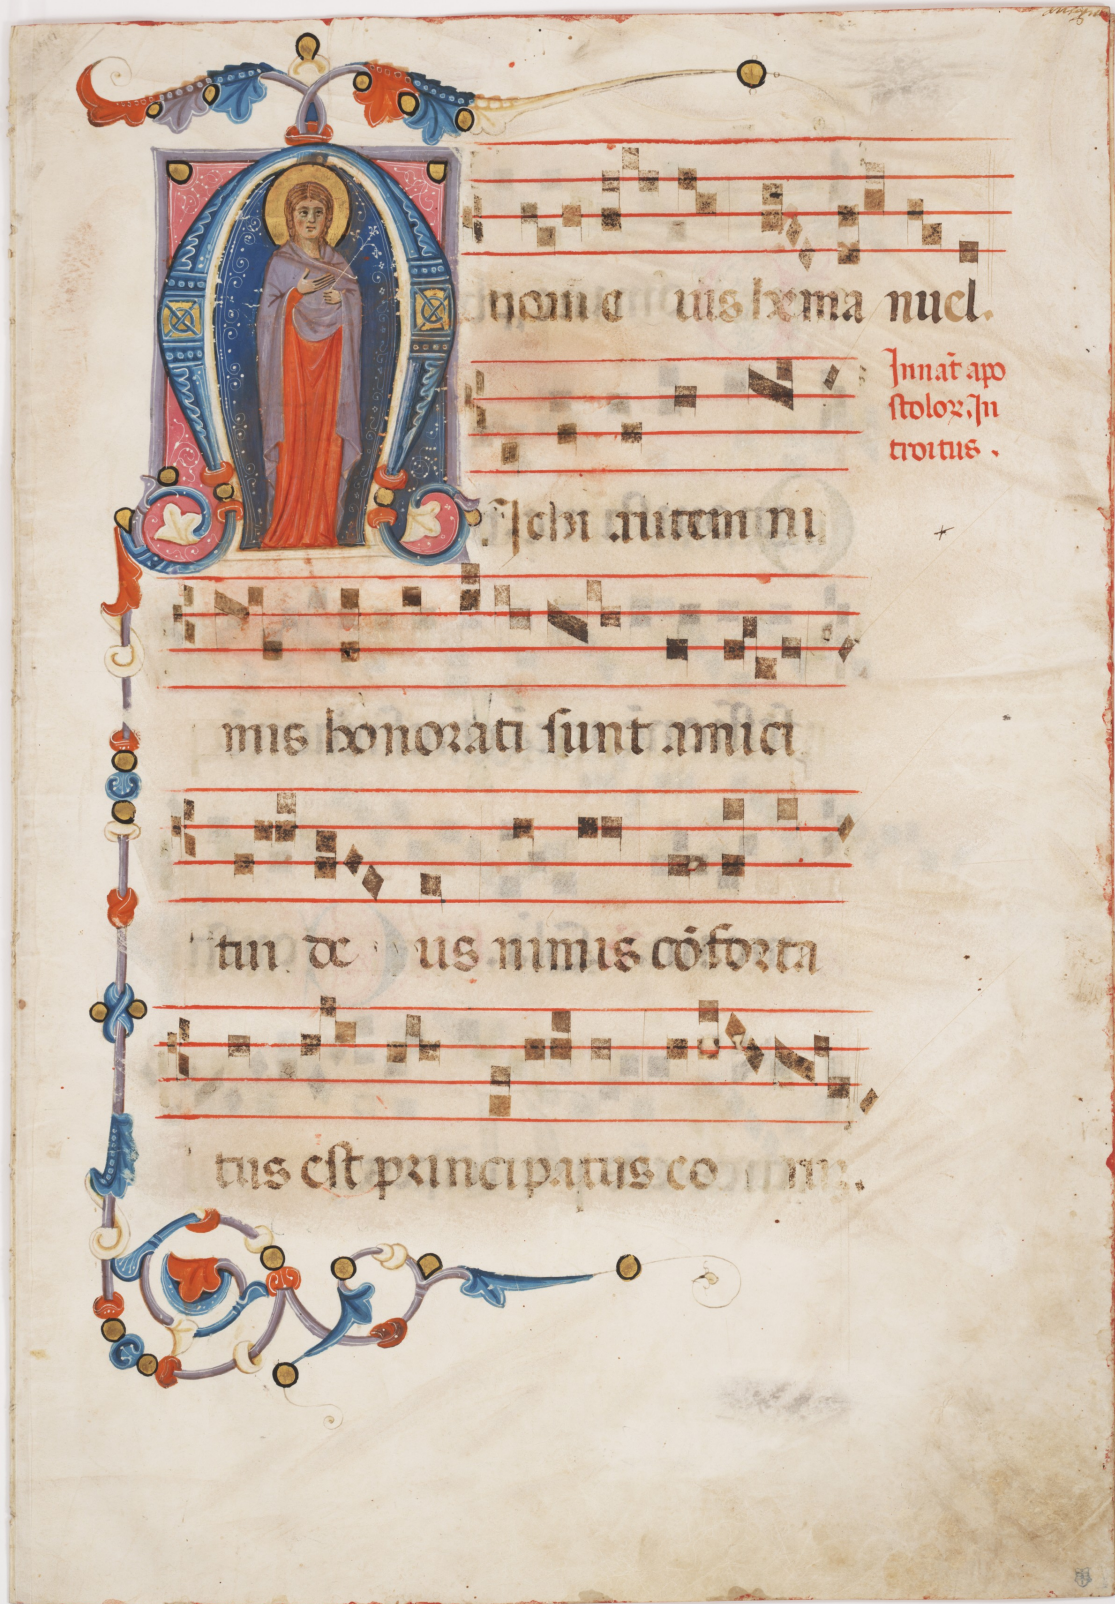 nomē eius hema nuel.
In nat̄ apo
stoloꝝ. In
troitus.
Michi autem ni
mis honorati sunt amici
tui de us nimis cōforta
tus est principatus eo rum.